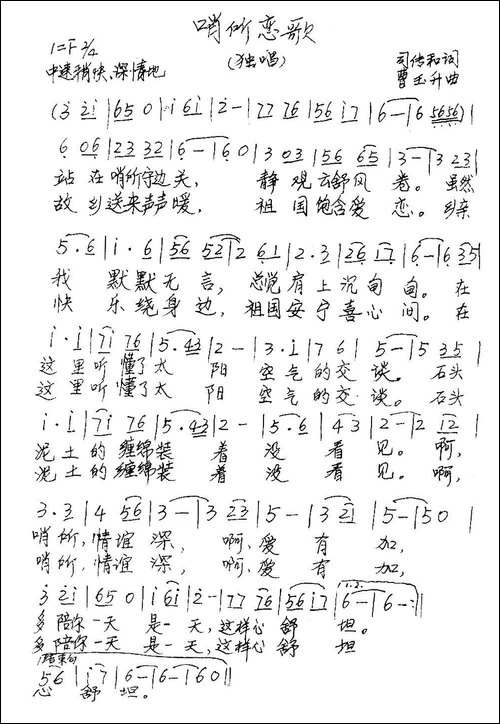 哨所恋歌
(独唱)
1=F 2/4
中速稍快、深情地
司传和词
曹玉升曲
(3 2i | 65 0 | i 6i | 2 - | 77 76 | 56 i7 | 6 - | 6 5656) |
6 06 | 23 32 | 6 - | 6 0 | 3 03 | 56 65 | 3 - | 3 23 |
站 在哨所守边关, 静 观云舒风 卷。 虽然
故 乡送来声声暖, 祖 国饱含爱 恋。 乡亲
5 · 6 | i · 6 | 56 52 | 2 61 | 2 · 3 | 26 17 | 6 - | 6 35 |
我 默默无言, 总觉肩上沉甸甸。 在
快 乐绕身边, 祖国安宁喜心间。 在
i · i | 7i 76 | 5 · 43 | 2 - | 3 · 1 | 7 6 | 5 - | 5 35 |
这里听懂了太 阳 空气的交谈。 石头
这里听懂了太 阳 空气的交谈。 石头
i · i | 7i 76 | 5 · 43 | 2 - | 5 · 6 | 4 3 | 2 - | 2 12 |
泥土的缠绵装 着 没 看 见。 啊,
泥土的缠绵装 着 没 看 见。 啊,
3 · 3 | 4 56 | 3 - | 3 23 | 5 - | 3 21 | 5 - | 5 0 |
哨所,情谊深, 啊、爱 有 加,
哨所,情谊深, 啊、爱 有 加,
3 2i | 65 0 | i 6i | 2 - | 77 76 | 56 i7 | 6 - | 6 - :||
1.2.
多陪你一天 是一天,这样心 舒 坦。
多陪你一天 是一天,这样心 舒 坦
结束句
56 | i 7 | 6 - | 6 - | 6 0 ||
心 舒 坦。